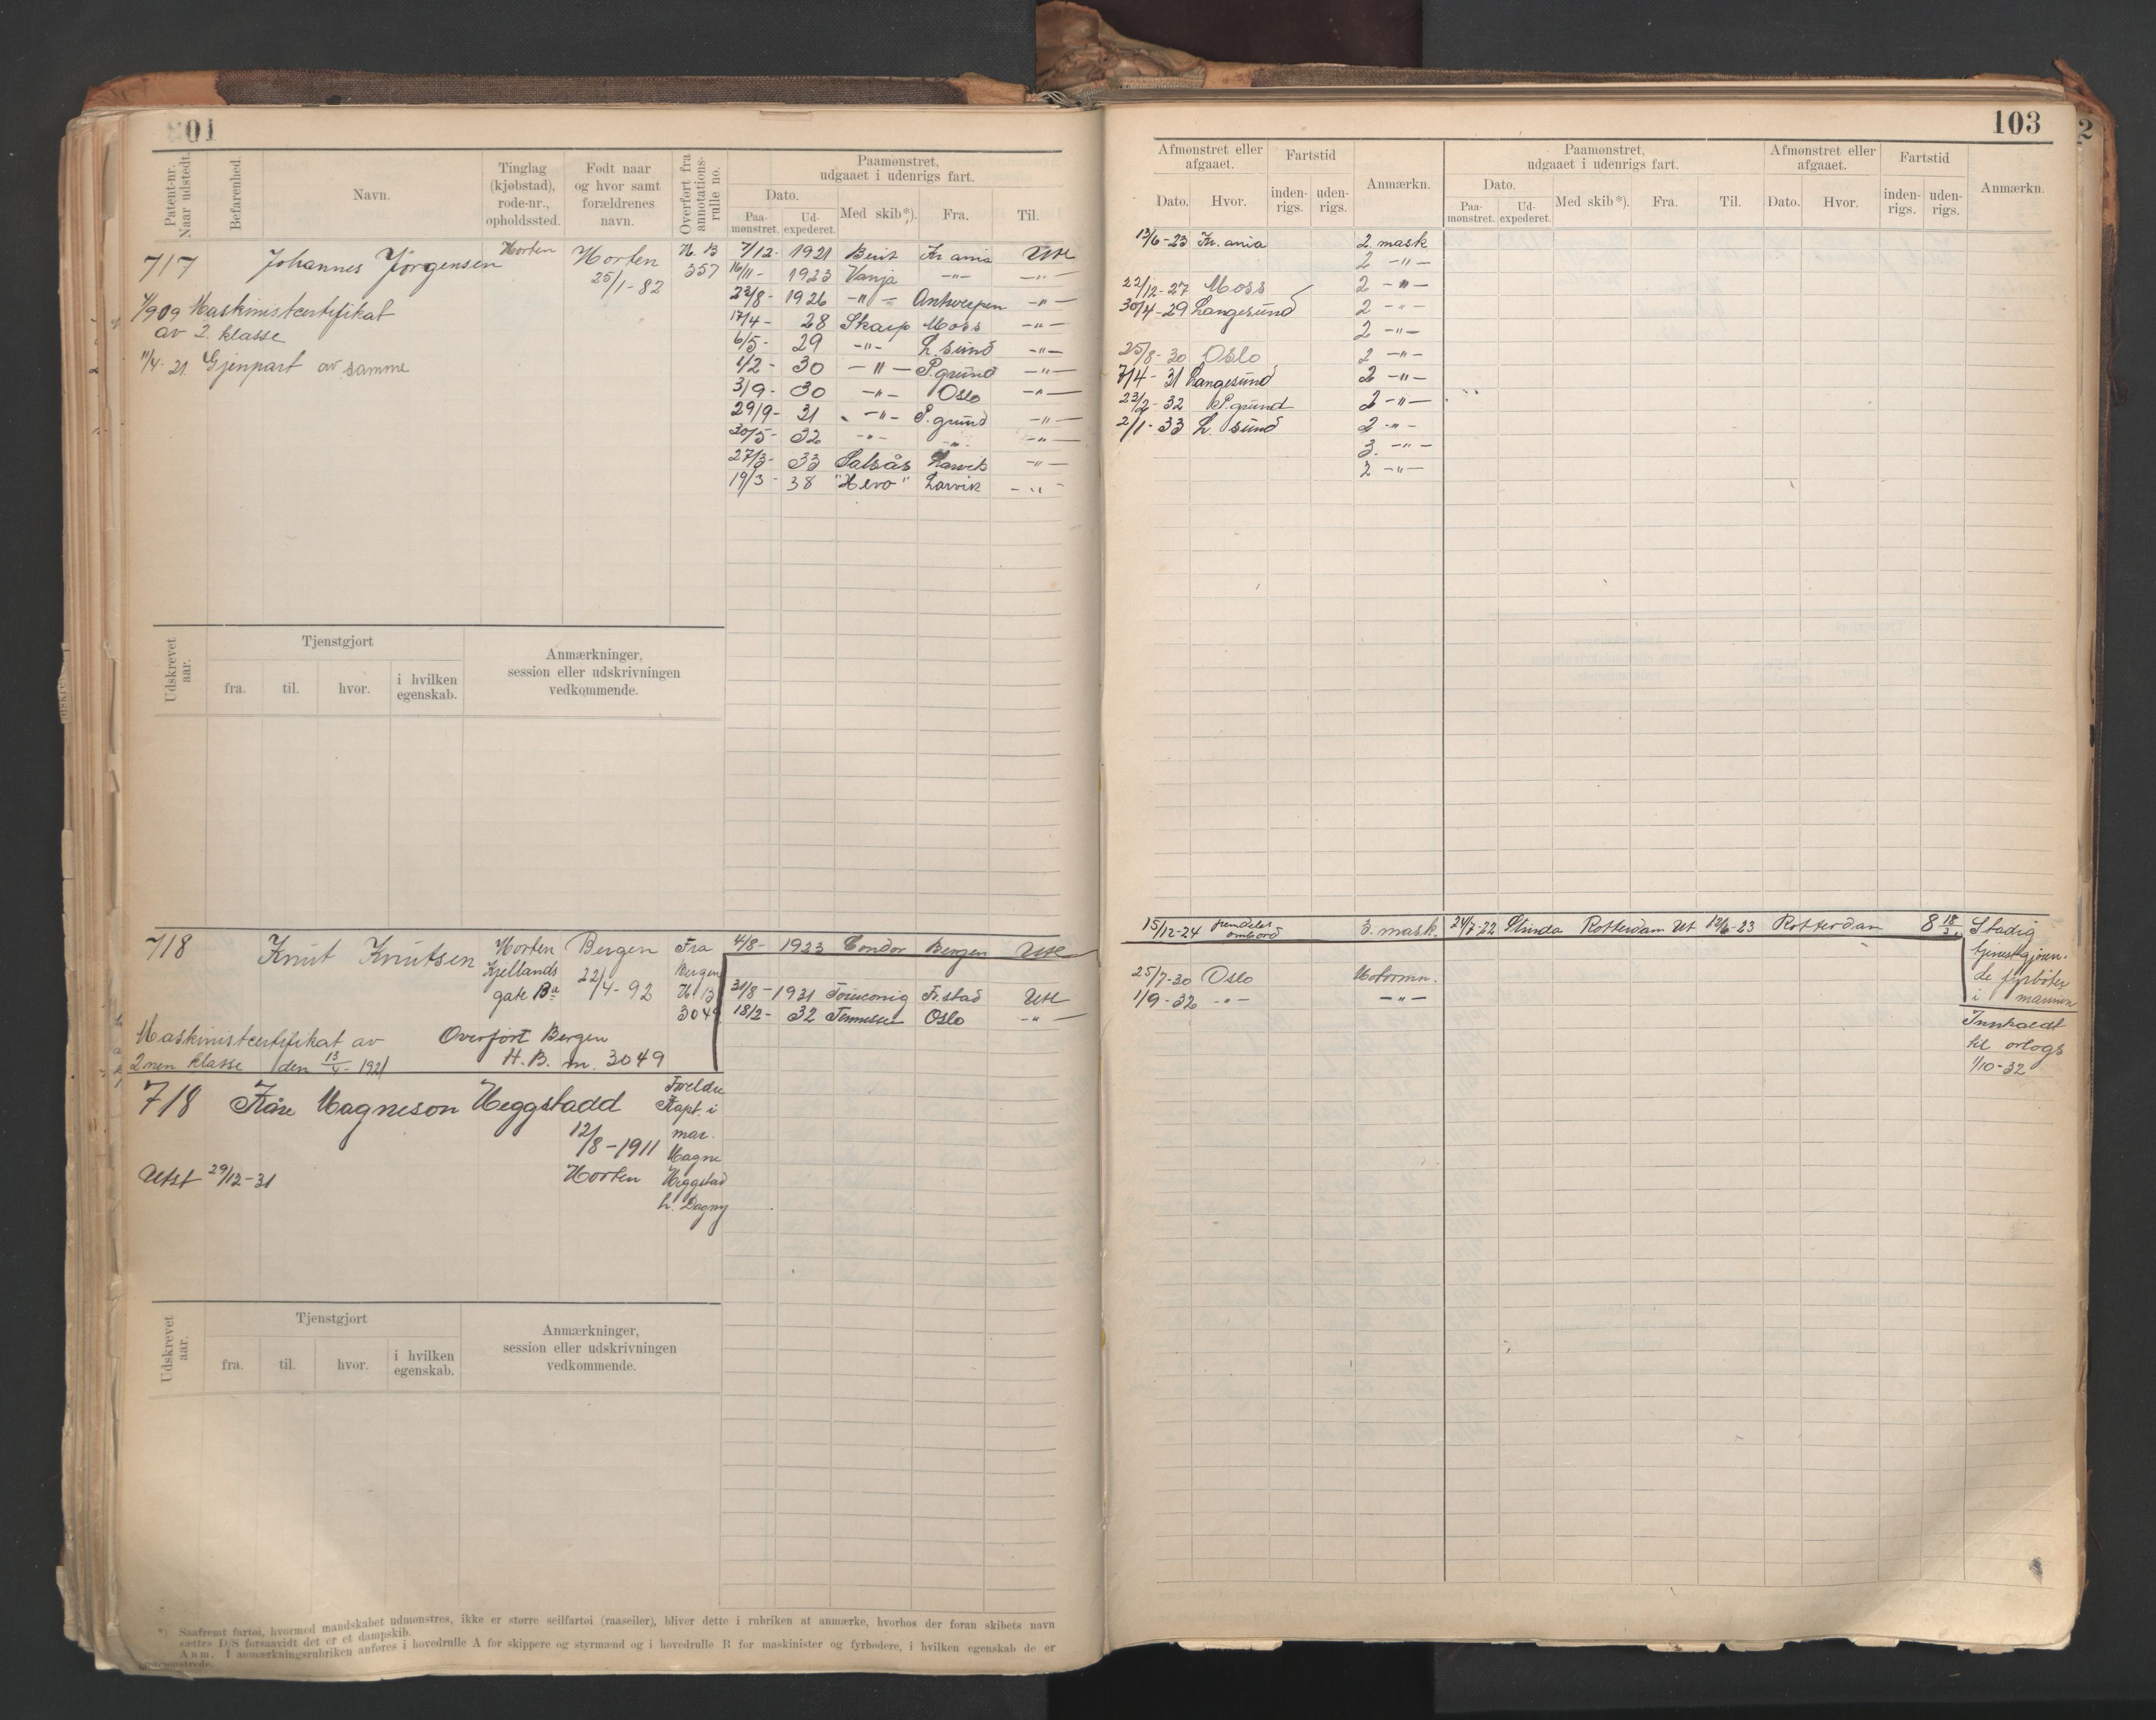 103
Patent-nr. Naar udstedt.
Befarenhed.
Navn.
Tinglag (kjøbstad), rode-nr., opholdssted.
Født naar og hvor samt forældrenes navn.
Overført fra annotations-rulle no.
Paamønstret, udgaaet i udenrigs fart.
Dato.
Paa-mønstret.
Ud-expederet.
Med skib*).
Fra.
Til.
Afmønstret eller afgaaet.
Dato.
Hvor.
Fartstid
inden-rigs.
uden-rigs.
Anmærkn.
Paamønstret, udgaaet i udenrigs fart.
Dato.
Paa-mønstret.
Ud-expederet.
Med skib*).
Fra.
Til.
Afmønstret eller afgaaet.
Dato.
Hvor.
Fartstid
inden-rigs.
uden-rigs.
Anmærkn.
717 Johannes Jørgensen Horten Horten 25/1-82 H. B 357
Maskinistcertifikat
av 2. klasse
11/4-21. Gjenpart av samme
7/12- 1921 Berit Kr ania Ute
16/11- 1923 Vanja -"- -"-
23/8- 1926 -"- Antwerpen -"-
17/4- 28 Skarp Moss -"-
6/5- 29 -"- L. sund -"-
1/2- 30 -"- P.grund -"-
3/9- 30 -"- Oslo -"-
29/9- 31 -"- P.grund -"-
30/5- 32 -"- -"- -"-
27/3- 33 Salsås Larvik -"-
19/3- 38 Larvik -"-
13/6-23 Kr. ania 2. mask
2 -"-
22/12-27 Moss 2 -"-
30/4-29 Langesund 2 -"-
2 -"-
25/8-30 Oslo 2 -"-
7/4-31 Langesund 2 -"-
23/2-32 P.grund 2 -"-
2/1-33 L. sund 2 -"-
3. -"-
2 -"-
Udskrevet aar.
Tjenstgjort
fra.
til.
hvor.
i hvilken egenskab.
Anmærkninger, session eller udskrivningen vedkommende.
718 Knut Knutsen Horten Bergen Fra
Kjellands 22/4-92 Bergen
gate H B
3049
Maskinistcertifikat av Overført Bergen
2nen klasse den 1921 H. B. nr. 3049
4/8- 1923 Condor Bergen Ute
31/8- 1931 Fr.stad Ute
18/2- 32 Tennessee Oslo -"-
15/12-24 fremdeles ombord 3. mask.
25/7-30 Oslo Motormn.
1/9-32 -"- -"-
24/7-22 Rotterdam Ut 12/6-23 Rotterdam 8 Stadig
tjenestgjøren-
de fyrbøter
i marinen
til orlogs
1/10-32
718 Kåre Magneson Heggstadd Foreldre
Kapt. i
12/8-1911 mar.
Magne
Utst 29/12-31 Horten Heggstad
h. Dagny
Udskrevet aar.
Tjenstgjort
fra.
til.
hvor.
i hvilken egenskab.
Anmærkninger, session eller udskrivningen vedkommende.
*) Saafremt fartøi, hvormed mandskabet udmønstres, ikke er større seilfartøi (raaseiler), bliver dette i rubriken at anmærke, hvorhos der foran skibets navn
sættes D/S forsaavidt det er et dampskib.
Anm. I anmærkningsrubriken anføres i hovedrulle A for skippere og styrmænd og i hovedrulle B for maskinister og fyrbødere, i hvilken egenskab de er